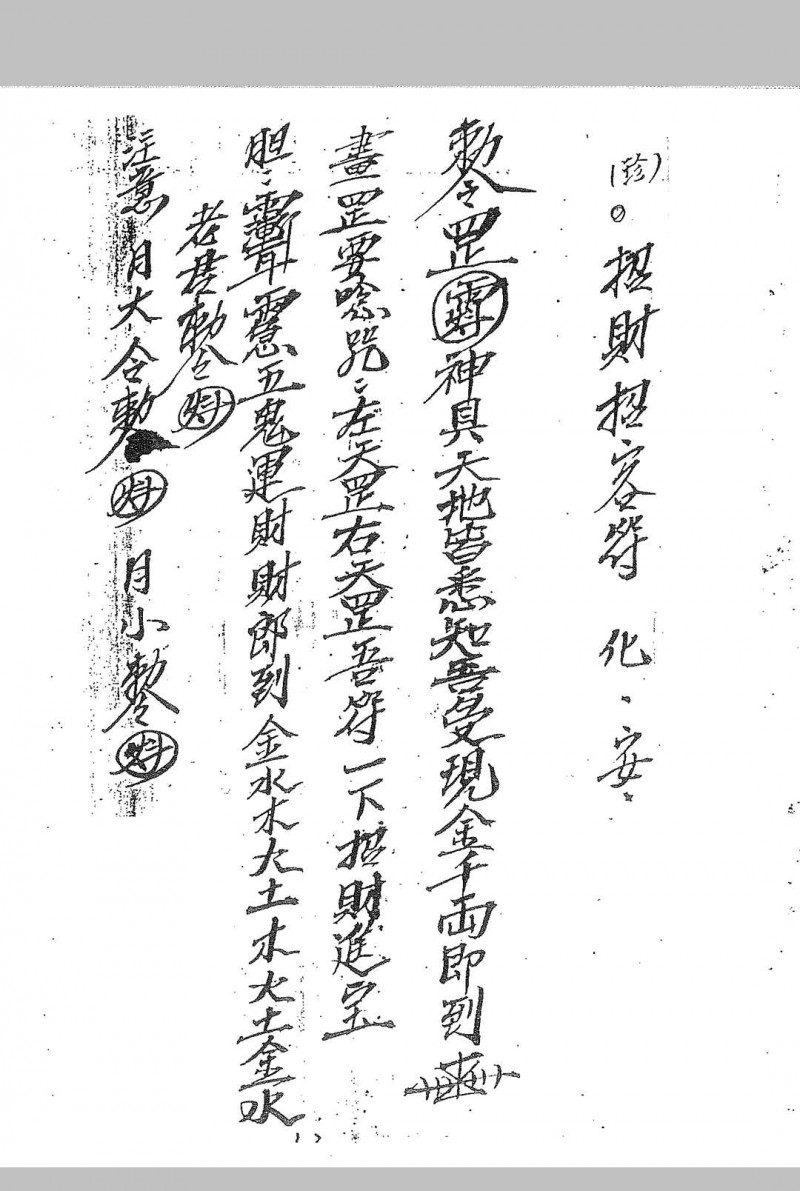 (珍)。招財招客符 化、安、
勅令罡 神具天地皆悉知吾受現金千両即到
畫罡要唸咒:左天罡右天罡吾符一下招財進宝
胆: 五鬼運財財郎到金水木火土木火土金水
老君勅令
注意 月大 令勅 月小 勅令